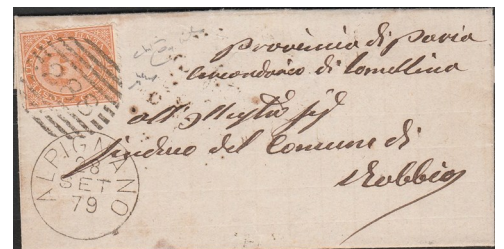 Provincia di Pavia
Circondario di Lomellina
all'Illmo Sig
Sindaco del Comune di
Robbio
ALPIGNANO
28
SET
79